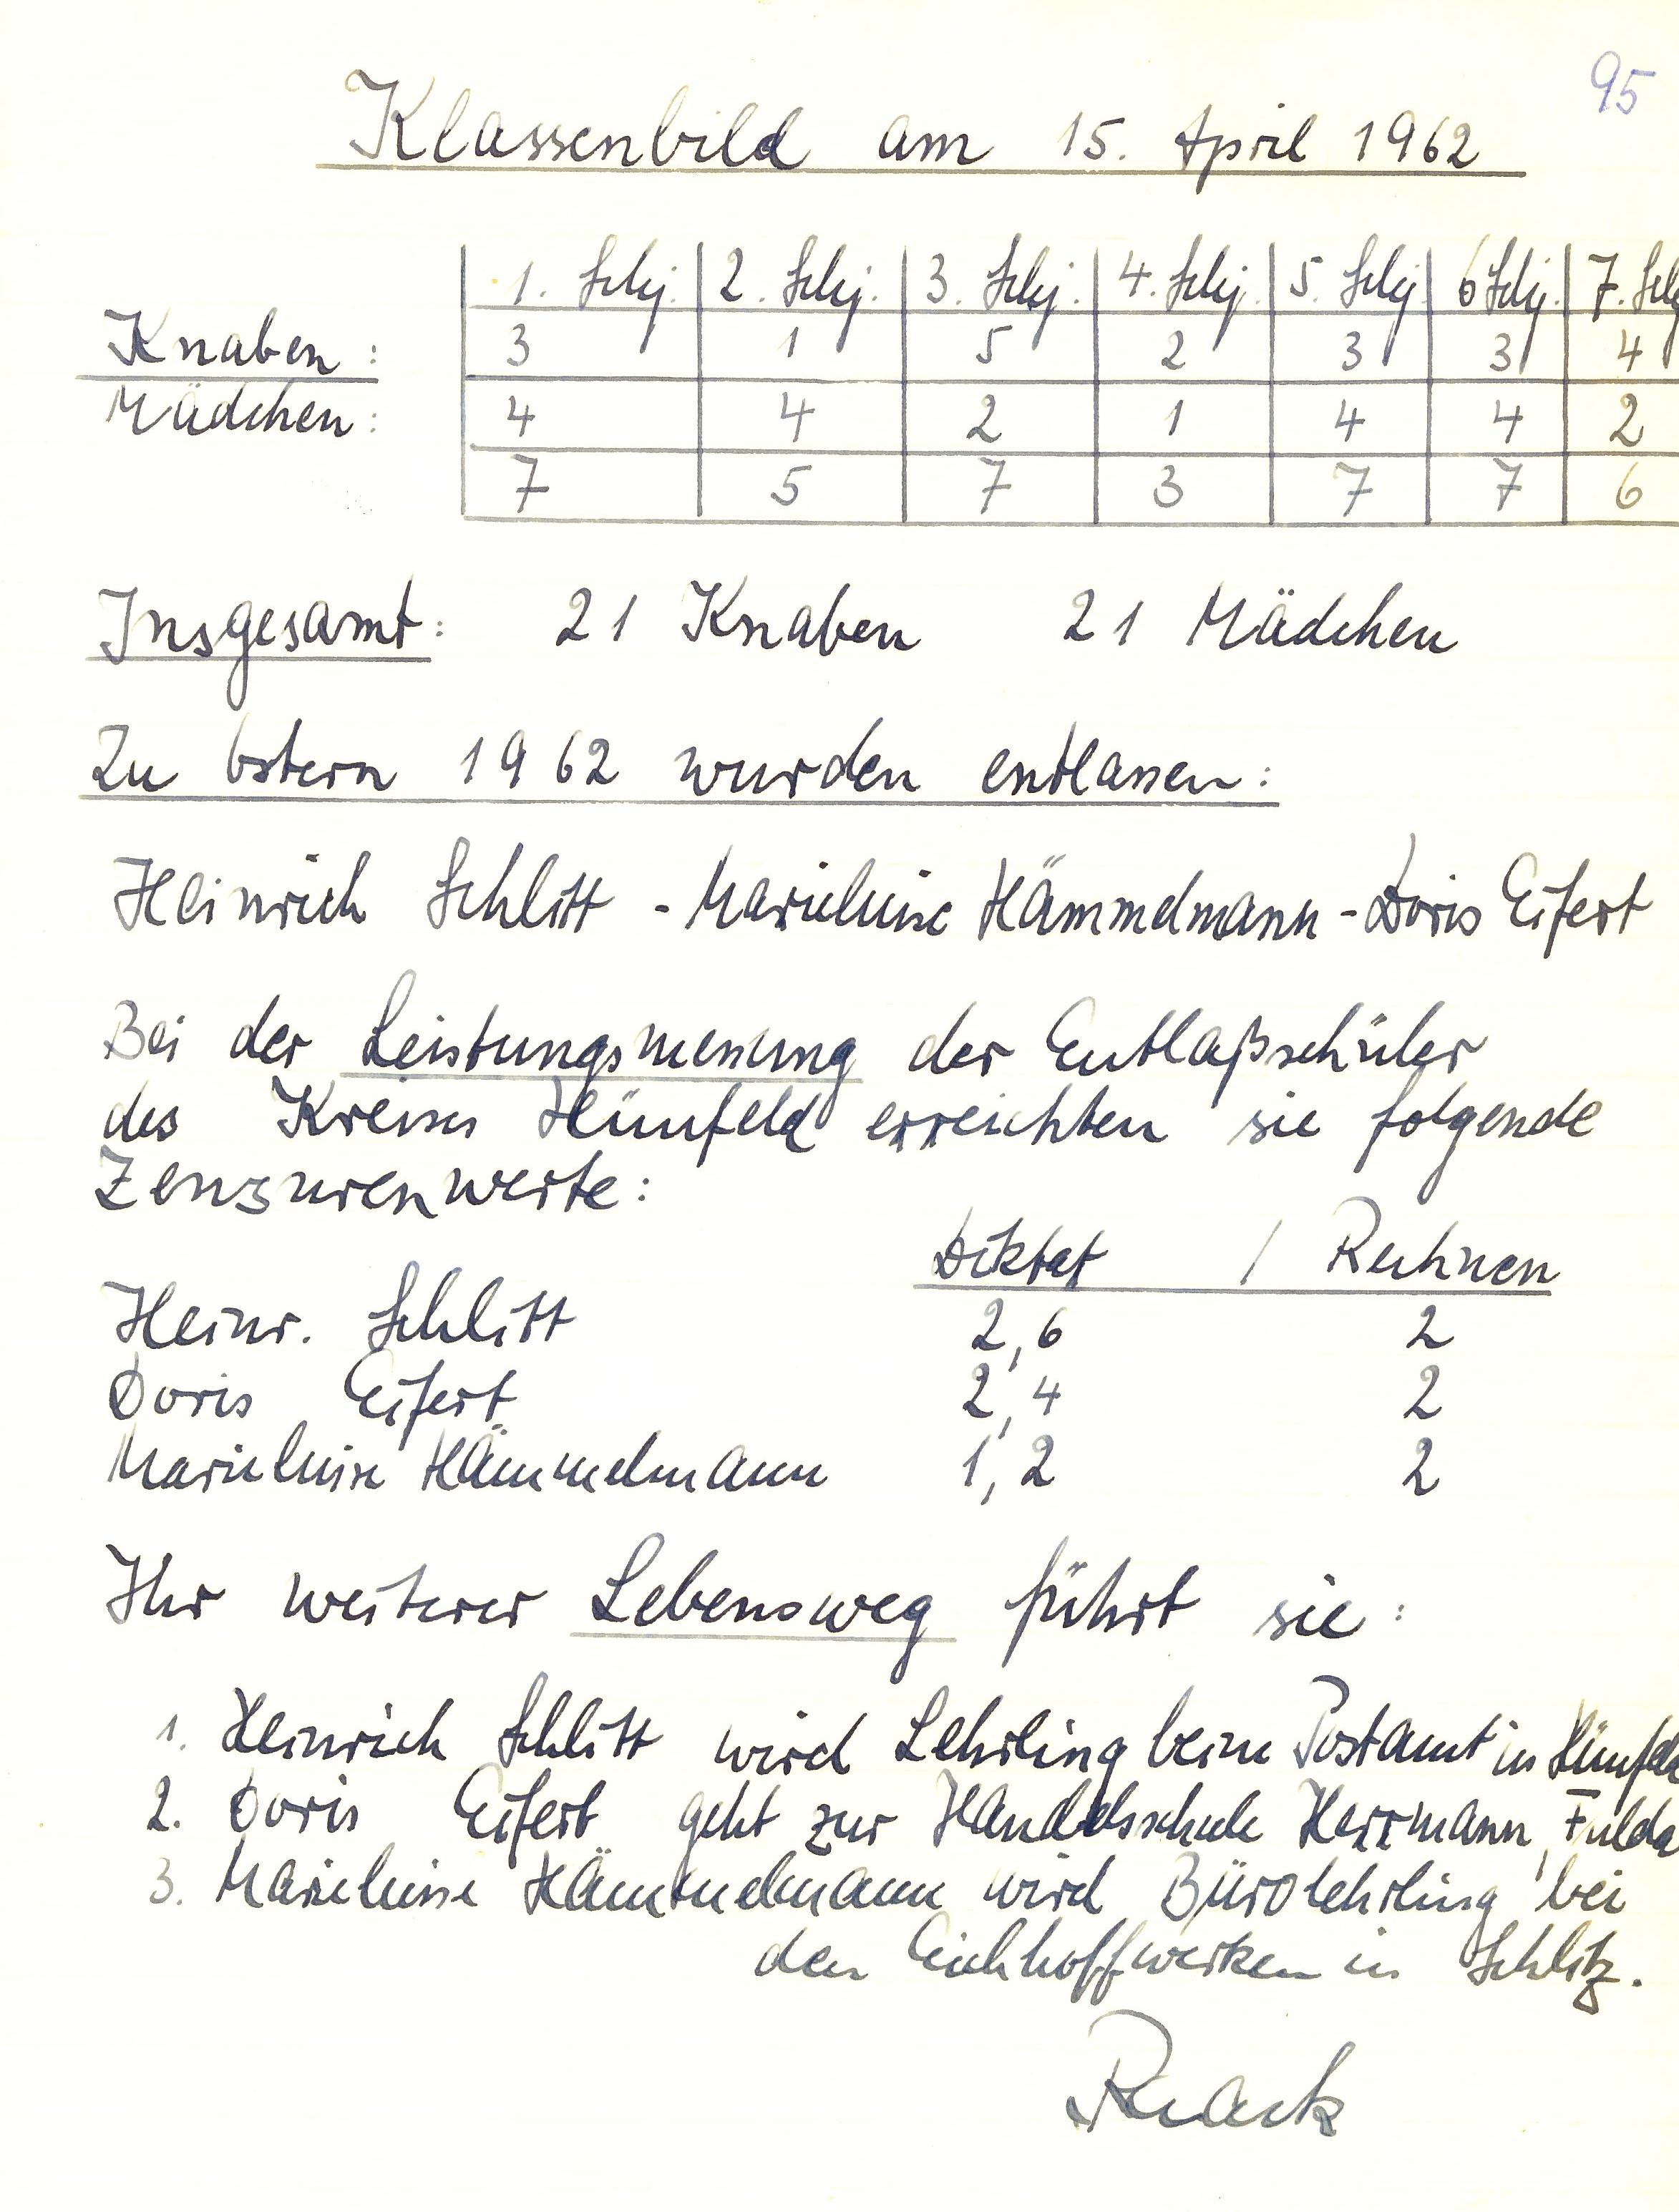 95
Klassenbild am 15. April 1962
1. Schj. 2. Schj. 3. Schj. 4. Schj. 5. Schj. 6 Schj. 7. Sch
Knaben: 3 1 5 2 3 3 4
Mädchen: 4 4 2 1 4 4 2
7 5 7 3 7 7 6
Insgesamt: 21 Knaben 21 Mädchen
Zu Ostern 1962 wurden entlassen:
Heinrich Schlitt - Marieluise Hämmelmann - Doris Eifert
Bei der Leistungsmessung der Entlaßschüler
des Kreises Hünfeld erreichten sie folgende
Zensurenwerte:
Diktat / Rechnen
Heinr. Schlitt 2,6 2
Doris Eifert 2,4 2
Marieluise Hämmelmann 1,2 2
Ihr weiterer Lebensweg führt sie:
1. Heinrich Schlitt wird Lehrling beim Postamt in Hünfeld
2. Doris Eifert geht zur Handelsschule Herrmann, Fulda
3. Marieluise Hämmelmann wird Bürolehrling bei
den Eichhoffwerken in Schlitz.